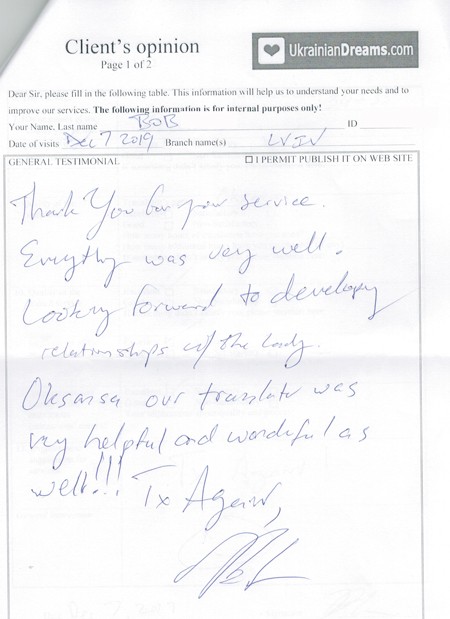 Client's opinion
Page 1 of 2
UkrainianDreams.com
Dear Sir, please fill in the following table. This information will help us to understand your needs and to
improve our services. The following information is for internal purposes only!
Your Name, Last name BOB ID
Date of visits Dec 7 2019 Branch name(s) LVIV
GENERAL TESTIMONIAL ☐ I PERMIT PUBLISH IT ON WEB SITE
Thank You for your service.
Everythg was very well.
Looking forward to developing
relationships w/ the lady.
Oksansa our translator was
very helpful and wonderful as
well!!! Tx Again,